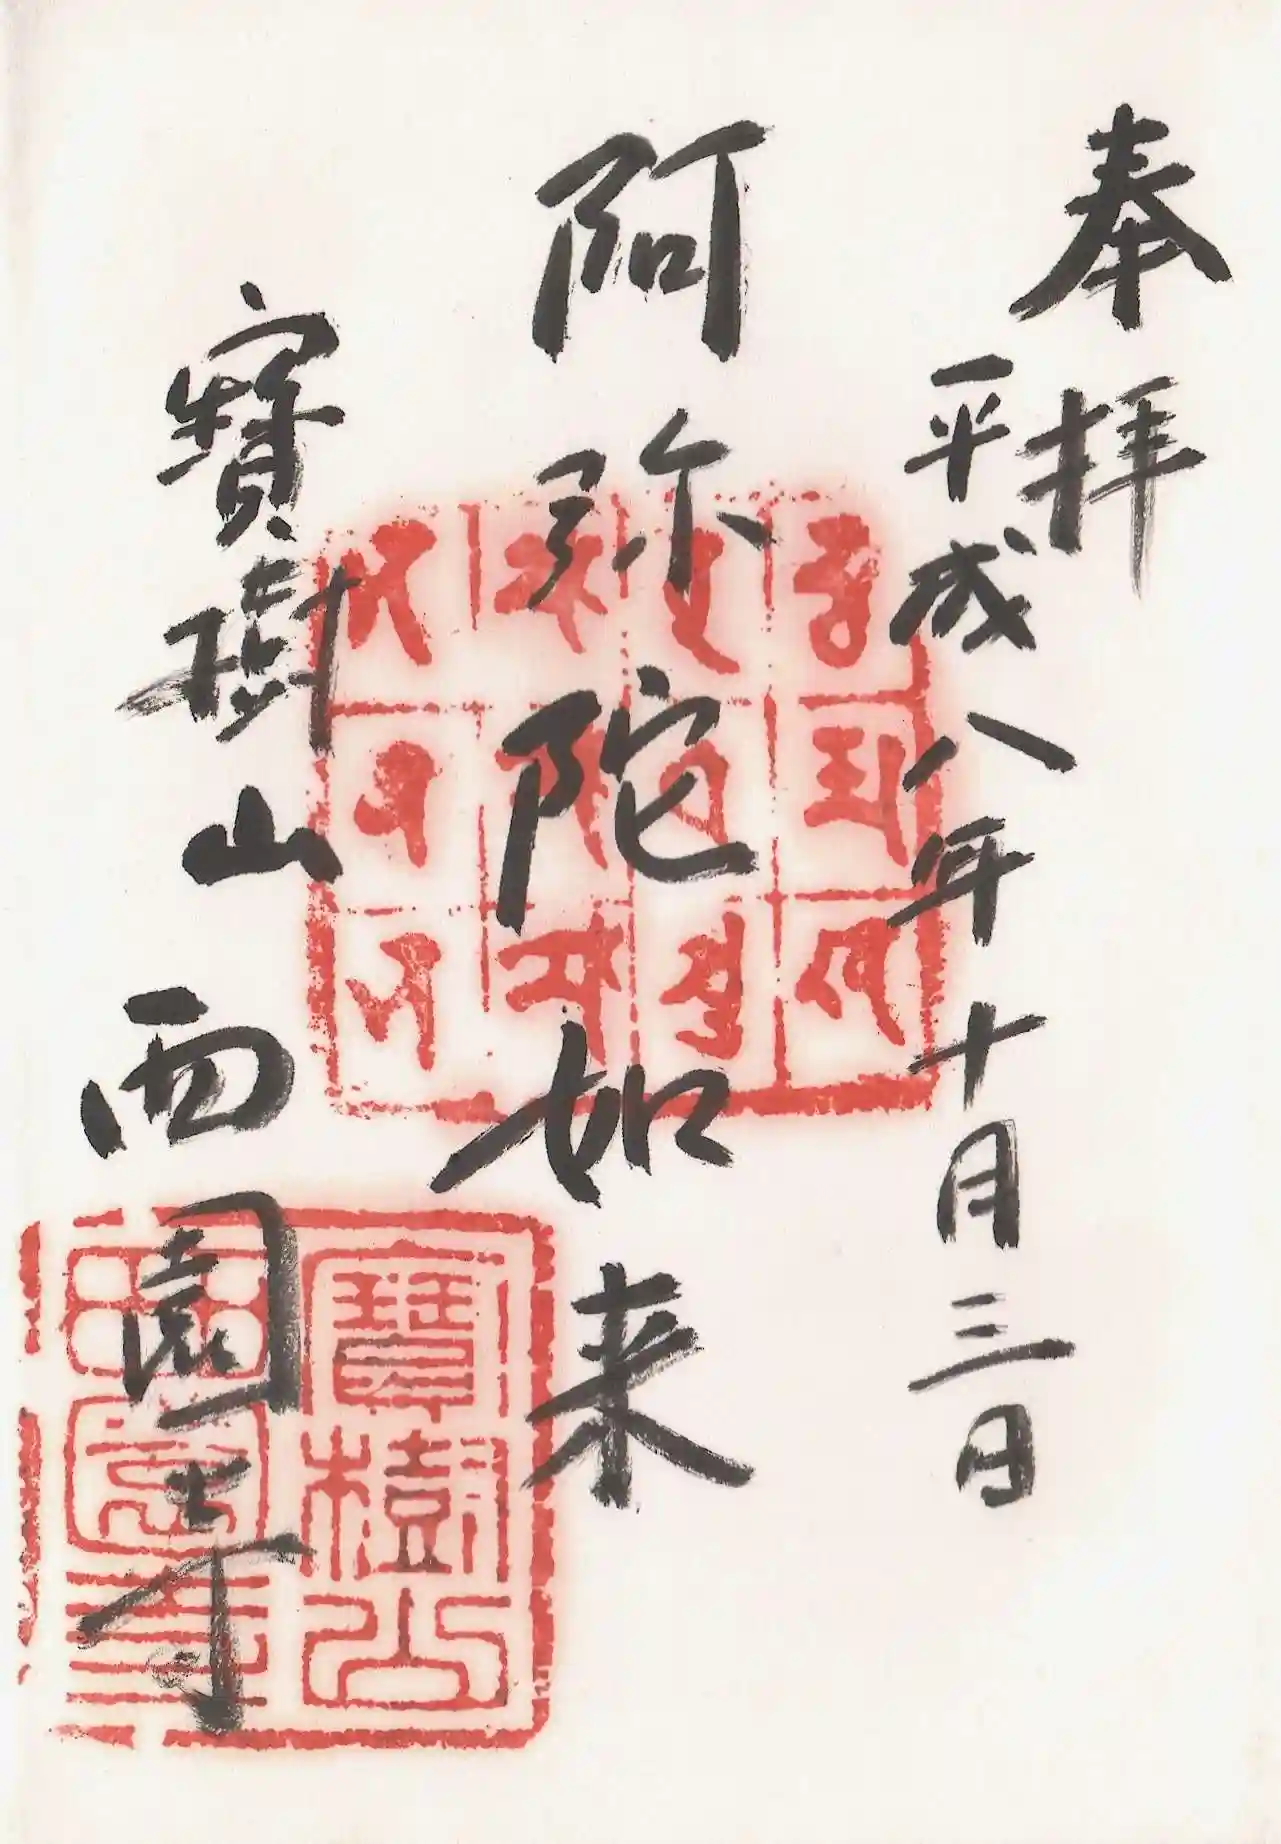 奉拝
平成八年十月三日
阿弥陀如来
寳樹山
西園寺
寳樹山
西園寺